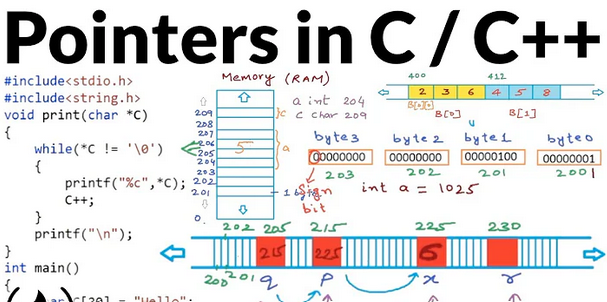 Pointers in C / C++
#include<stdio.h>
#include<string.h>
void print(char *C)
{
while(*C != '\0')
{
printf("%c",*C);
C++;
}
printf("\n");
}
int main()
{
char C[20] = "Hello";
Memory (RAM)
209
208
207
206
205
204
203
202
201
0
5
c
a
1 byte
a int 204
c char 209
400
412
2 3 6 4 5 8
B[0][0]
B[0]
B[1]
byte3 byte2 byte1 byte0
00000000 00000000 00000100 00000001
203 202 201 2001
Sign
bit
int a = 1025
202 205 215 225 230
215 225 6
200 201 q p x r